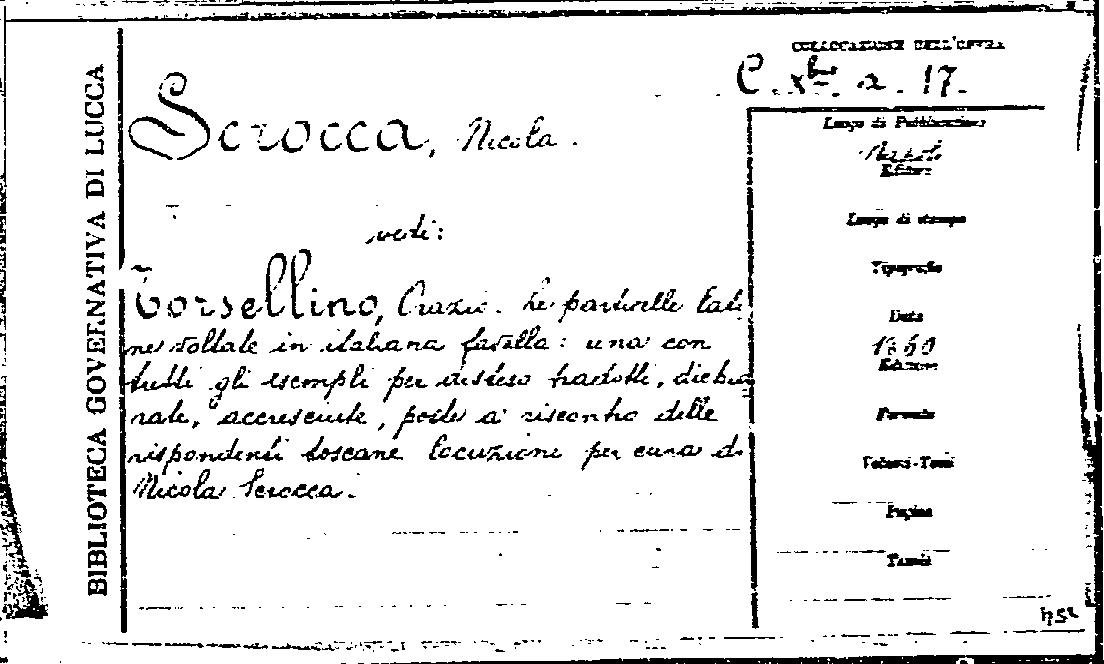 BIBLIOTECA GOVERNATIVA DI LUCCA
Scrocca, Nicola.
vedi:
Torsellino, Orazio. Le particelle lati-
ne voltate in italiana favella: una con
tutti gli esempli per disteso tradotti, dichia
rate, accresciute, poste a riscontro delle
rispondenti toscane locuzioni per cura di
Nicola Scrocca.
COLLOCAZIONE DELL'OPERA
C. a. 17.
Luogo di Pubblicazione
Napoli
Editore
Luogo di stampa
Tipografia
Data
1860
Edizione
Formato
Volumi-Tomi
Pagine
Tavole